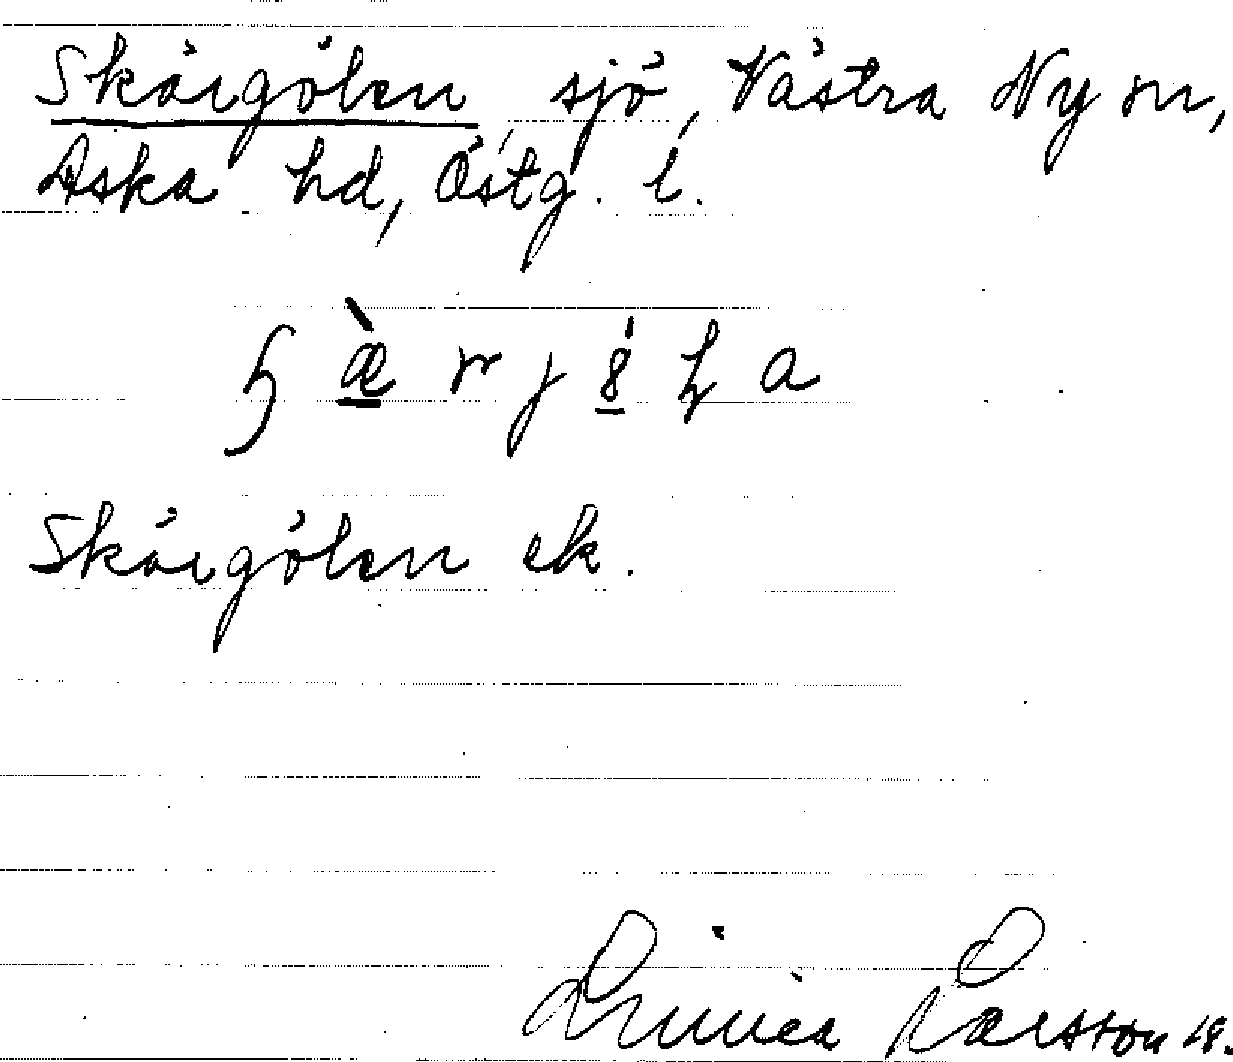 Skärgölen sjö, Västra Ny sn,
Aska hd, Östg. l.
Skärgölen ek.
Linnea Larsson 18.